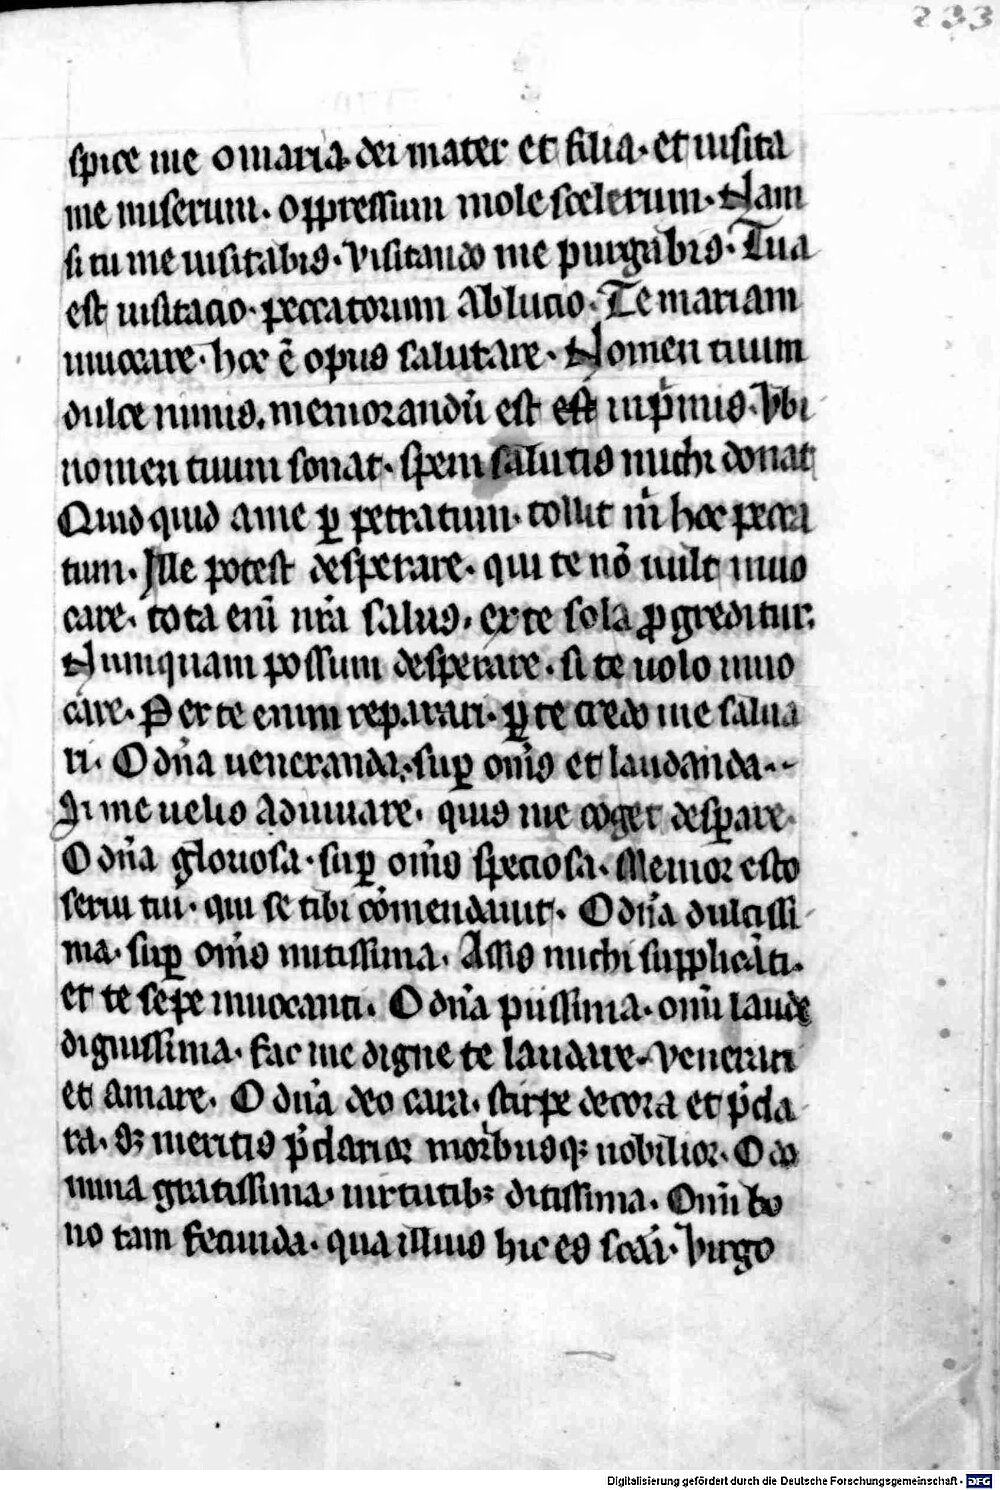 233
spice me o maria dei mater et filia · et uisita
me miserum · oppressum mole scelerum · Nam
si tu me uisitabis · visitando me purgabis · Tua
est uisitacio · peccatorum ablucio · Te mariam
inuocare · hoc ē opus salutare · Nomen tuum
dulce nimis . memorandū est est inpⁱmis · Vbi
nomen tuum sonat · spem salutis michi donat
Quid quid a me ꝑ petratum · tollit nr̄i hoc pecca
tum · Ille potest desperare · qui te nō uult inuo
care · tota eni̅ nr̄a salus · ex te sola ꝓgreditur ·
Nunquam possum desperare · si te uolo inuo
care · Per te enim reparari · ꝑ te credo me salua
ri · O dn̄a ueneranda · suꝑ om̄s et laudanda --
Si me uelis adiuuare · quis me coget desꝑare ·
O dn̄a gloriosa · suꝑ om̄s speciosa · Memor esto
serui tui · qui se tibi cōmendauit · O dn̄a dulcissi
ma · suꝑ om̄s mitissima · Assis michi supplicāti ·
et te sepe inuocanti · O dn̄a piissima · omi̅ laude
dignissima · fac me digne te laudare · venerari
et amare · O dn̄a deo cara · stirpe decora et p̄cla
ra · sꝫ meritis p̄clarior moribusqꝫ nobilior · O do
mina gratissima · uirtutibꝫ ditissima · Omi̅ bo
no tam fecunda · qua illius hic es scd̄a · Virgo
Digitalisierung gefördert durch die Deutsche Forschungsgemeinschaft - DFG